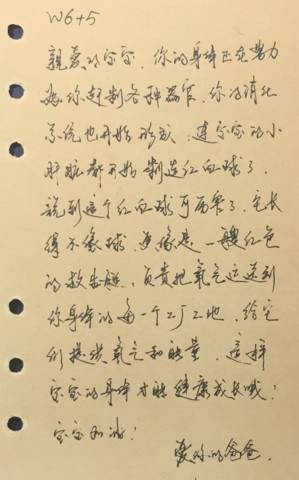 W6+5
親愛的宝宝，你的身体正在努力
為你趕制各种器官，你的消化
系统也开始形成，連宝宝的小
肝脏都开始制造红血球了．
說到這个红血球可厉害了，它长
得不像球，更像是一艘红色
的救生艇，负責把氧气运送到
你身体的每一个工厂工地，给它
们提供氧气和能量，這样
宝宝的身体才能健康成长哦！
宝宝加油！
爱你的爸爸．